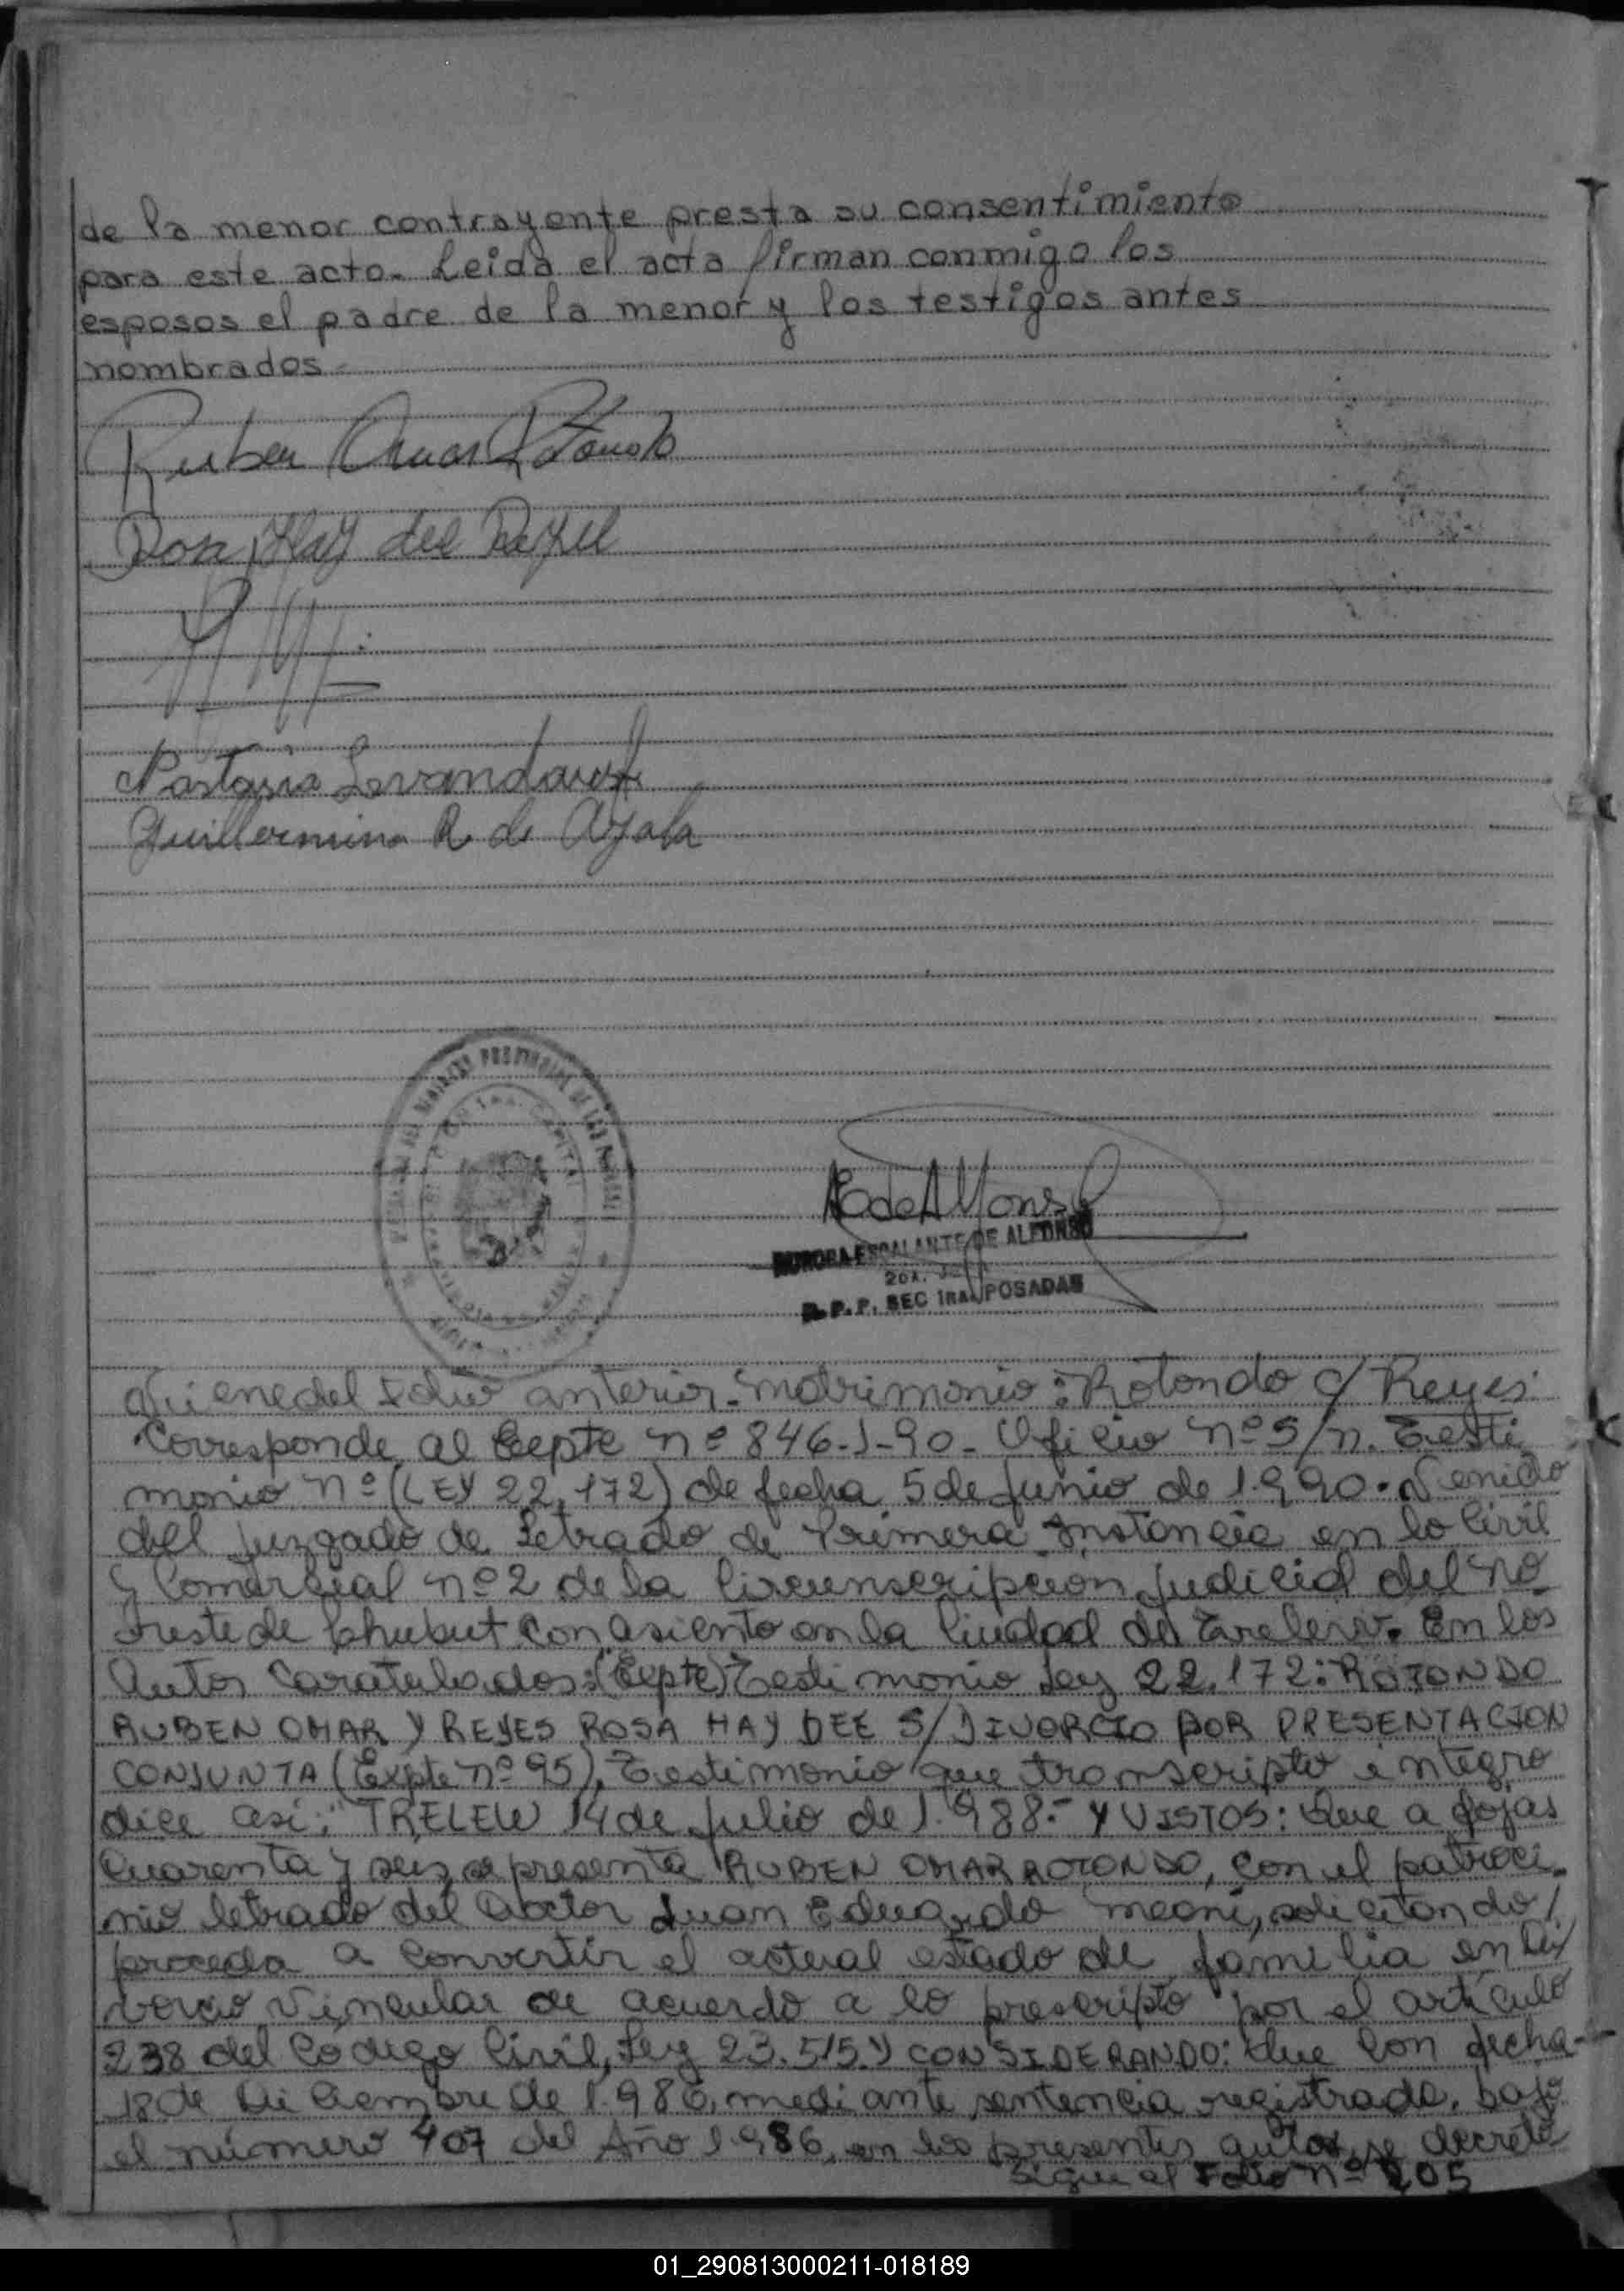 de la menor contrayente presta su consentimiento
para este acto.- Leida el acta firman conmigo los
esposos el padre de la menor y los testigos antes
nombrados.-
Ruben Omar Rotondo
Rosa Hay dee Reyes
Guillermina R de Ayala
RodeAlfonso
AURORA ESCALANTE DE ALFONSO
R. P. P. SEC 1RA. POSADAS
Viene del Folio anterior.- matrimonio: Rotondo c/ Reyes
Corresponde al Expte nº 846-J-90- Oficio nº S/n. Testi
monio nº (LEY 22.172) de fecha 5 de Junio de 1.990. Venido
del Juzgado de Letrado de Primera Instancia en lo Civil
y Comercial nº 2 de la Circunscripcion Judicial del no
reste de Chubut con asiento en la Ciudad de Trelew. En los
Autos Caratulados: (Expte) Testimonio Ley 22.172: ROTONDO
RUBEN OMAR Y REYES ROSA HAY DEE S/ DIVORCIO POR PRESENTACION
CONJUNTA (Expte nº 95), Testimonio que transcripto integro
dice asi: "TRELEW 14 de Julio de 1.988.- Y VISTOS: Que a fojas
Cuarenta y seis se presenta RUBEN OMAR ROTONDO, con el patroci
nio letrado del doctor Juan Eduardo Meoni, solicitando /
proceda a convertir el actual estado de familia en di/
vorcio vincular de acuerdo a lo prescripto por el artículo
238 del Código Civil, Ley 23.515.Y CONSIDERANDO: Que con fecha-
18 de Diciembre de 1.986, mediante sentencia registrada, bajo
el número 407 del Año 1.986, en los presentes autos, se decretó
Sigue al Folio nº 205
01_290813000211-018189